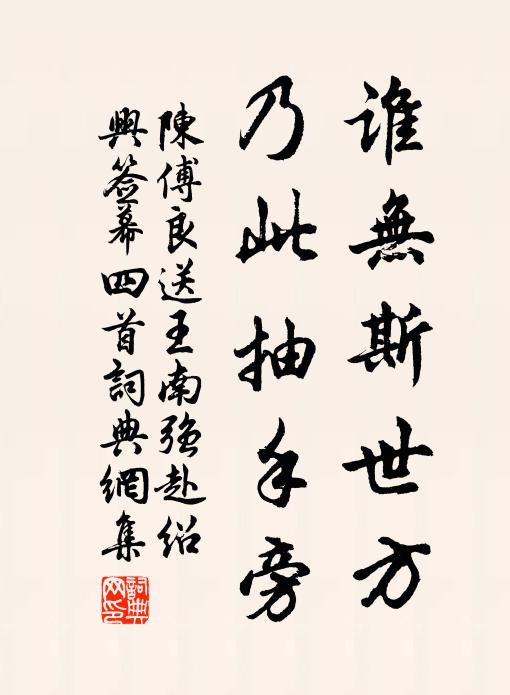 誰無斯世方
乃此抽手旁
陳傅良送王南強赴紹
興簽幕四首詞典網集
詞典
网印